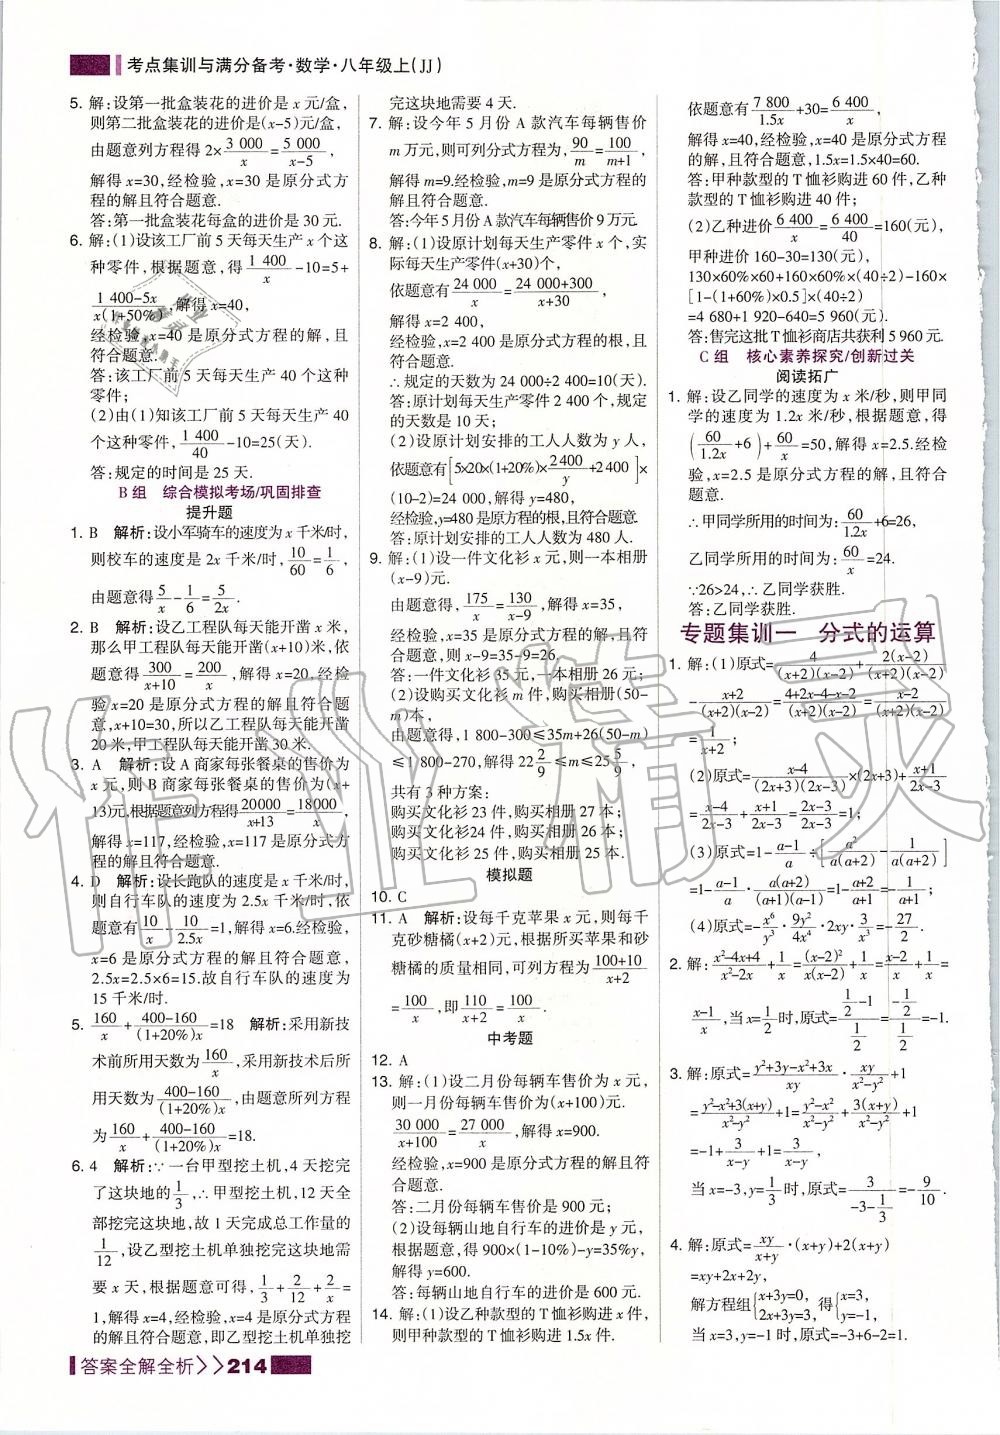 考点集训与满分备考·数学·八年级上(JJ)
5. 解:设第一批盒装花的进价是 x 元/盒,
则第二批盒装花的进价是(x-5)元/盒,
由题意列方程得 2×3 000/x=5 000/(x-5),
解得 x=30,经检验,x=30 是原分式方
程的解且符合题意.
答:第一批盒装花每盒的进价是 30 元.
6. 解:(1)设该工厂前 5 天每天生产 x 个这
种零件,根据题意,得 1 400/x-10=5+
(1 400-5x)/(x(1+50%)),解得 x=40,
经检验,x=40 是原分式方程的解,且
符合题意.
答:该工厂前 5 天每天生产 40 个这种
零件;
(2)由(1)知该工厂前 5 天每天生产 40
个这种零件,1 400/40-10=25(天).
答:规定的时间是 25 天.
B 组 综合模拟考场/巩固排查
提升题
1. B 解析:设小军骑车的速度为 x 千米/时,
则校车的速度是 2x 千米/时,10/60=1/6,
由题意得5/x-1/6=5/2x.
2. B 解析:设乙工程队每天能开凿 x 米,
那么甲工程队每天能开凿(x+10)米,依
题意得300/(x+10)=200/x,解得 x=20,经检
验 x=20 是原分式方程的解且符合题
意,x+10=30,所以乙工程队每天能开凿
20 米,甲工程队每天能开凿 30 米.
3. A 解析:设 A 商家每张餐桌的售价为
x 元,则 B 商家每张餐桌的售价为(x+
13)元,根据题意列方程得20000/(x+13)=18000/x,
解得 x=117,经检验,x=117 是原分式方
程的解且符合题意.
4. D 解析:设长跑队的速度为 x 千米/时,
则自行车队的速度为 2.5x 千米/时,依
题意有10/x-10/2.5x=1,解得 x=6.经检验,
x=6 是原分式方程的解且符合题意,
2.5x=2.5×6=15.故自行车队的速度为
15 千米/时.
5. 160/x+(400-160)/((1+20%)x)=18 解析:采用新技
术前所用天数为160/x,采用新技术后所
用天数为(400-160)/((1+20%)x),由题意所列方程
为160/x+(400-160)/((1+20%)x)=18.
6. 4 解析:∵一台甲型挖土机,4 天挖完
了这块地的1/3,∴甲型挖土机,12 天全
部挖完这块地,故 1 天完成总工作量的
1/12,设乙型挖土机单独挖完这块地需
要 x 天,根据题意可得,1/3+2/12+2/x=
1,解得 x=4,经检验,x=4 是原分式方程
的解且符合题意,即乙型挖土机单独挖
完这块地需要 4 天.
7. 解:设今年 5 月份 A 款汽车每辆售价
m 万元,则可列分式方程为,90/m=100/(m+1),
解得 m=9.经检验,m=9 是原分式方程
的解且符合题意.
答:今年5月份A款汽车每辆售价9万元.
8. 解:(1)设原计划每天生产零件 x 个,实
际每天生产零件(x+30)个,
依题意有24 000/x=(24 000+300)/(x+30),
解得 x=2 400,
经检验,x=2 400 是原方程的根,且符合
题意.
∴规定的天数为 24 000÷2 400=10(天).
答:原计划每天生产零件 2 400 个,规定
的天数是 10 天;
(2)设原计划安排的工人人数为 y 人,
依题意有[5×20×(1+20%)×2 400/y+2 400]×
(10-2)=24 000,解得 y=480,
经检验,y=480 是原方程的根,且符合题意.
答:原计划安排的工人人数为 480 人.
9. 解:(1)设一件文化衫 x 元,则一本相册
(x-9)元.
由题意得:175/x=130/(x-9),解得 x=35,
经检验,x=35 是原分式方程的解且符
合题意,则 x-9=35-9=26.
答:一件文化衫 35 元,一本相册 26 元;
(2)设购买文化衫 m 件,购买相册(50-
m)本,
由题意得,1 800-300≤35m+26(50-m)
≤1 800-270,解得 22 2/9≤m≤25 5/9,
共有 3 种方案:
购买文化衫 23 件,购买相册 27 本;
购买文化衫24 件,购买相册 26 本;
购买文化衫 25 件,购买相册 25 本.
模拟题
10. C
11. A 解析:设每千克苹果 x 元,则每千
克砂糖橘(x+2)元,根据所买苹果和砂
糖橘的质量相同,可列方程为(100+10)/(x+2)
=100/x,即110/(x+2)=100/x.
中考题
12. A
13. 解:(1)设二月份每辆车售价为 x 元,
则一月份每辆车售价为(x+100)元.
30 000/(x+100)=27 000/x,解得 x=900.
经检验,x=900 是原分式方程的解且符
合题意.
答:二月份每辆车售价是 900 元;
(2)设每辆山地自行车的进价是 y 元,
根据题意,得 900×(1-10%)-y=35%y,
解得 y=600.
答:每辆山地自行车的进价是 600 元.
14. 解:(1)设乙种款型的 T 恤衫购进 x 件,
则甲种款型的 T 恤衫购进 1.5x 件.
依题意有7 800/1.5x+30=6 400/x,
解得 x=40,经检验,x=40 是原分式方程
的解,且符合题意,1.5x=1.5×40=60.
答:甲种款型的 T 恤衫购进 60 件,乙种
款型的 T 恤衫购进 40 件;
(2)乙种进价6 400/x=6 400/40=160(元),
甲种进价 160-30=130(元),
130×60%×60+160×60%×(40÷2)-160×
[1-(1+60%)×0.5]×(40÷2)
=4 680+1 920-640=5 960(元).
答:售完这批T恤衫商店共获利 5 960元.
C 组 核心素养探究/创新过关
阅读拓广
1. 解:设乙同学的速度为 x 米/秒,则甲同
学的速度为 1.2x 米/秒,根据题意,得
(60/1.2x+6)+60/x=50,解得 x=2.5.经检
验,x=2.5 是原分式方程的解,且符合
题意.
∴甲同学所用的时间为:60/1.2x+6=26,
乙同学所用的时间为:60/x=24.
∵26>24,∴乙同学获胜.
答:乙同学获胜.
专题集训一 分式的运算
1. 解:(1)原式=4/((x+2)(x-2))+2(x-2)/((x+2)(x-2))
-(x+2)/((x+2)(x-2))=(4+2x-4-x-2)/((x+2)(x-2))=(x-2)/((x+2)(x-2))
=1/(x+2);
(2)原式=(x-4)/((2x+3)(2x-3))×(2x+3)+(x+1)/(2x-3)
=(x-4)/(2x-3)+(x+1)/(2x-3)=(2x-3)/(2x-3)=1;
(3)原式=1-(a-1)/a÷[a²/(a(a+2))-1/(a(a+2))]
=1-(a-1)/a·a(a+2)/((a+1)(a-1))=1-(a+2)/(a+1)=-1/(a+1);
(4)原式=-x⁶/y³·9y²/4x⁴·2xy·3/x³=-27/2.
2. 解:(x²-4x+4)/(x²-2x)+1/x=(x-2)²/(x(x-2))+1/x=(x-2)/x+1/x=
(x-1)/x,当 x=1/2时,原式=(1/2-1)/(1/2)=(-1/2)/(1/2)=-1.
3. 解:原式=(y²+3y-x²+3x)/xy·xy/(x²-y²)+1
=(y²-x²+3(x+y))/(x²-y²)+1=(y²-x²)/(x²-y²)+3(x+y)/(x²-y²)+1
=-1+3/(x-y)+1=3/(x-y),
当 x=-3,y=1/3时,原式=3/(-3-1/3)=-9/10.
4. 解:原式=xy/(x+y)·(x+y)+2(x+y)
=xy+2x+2y,
解方程组{x+3y=0, 2x+3y=3, 得{x=3, y=-1,
当 x=3,y=-1 时,原式=-3+6-2=1.
答案全解全析>>214
作业精灵